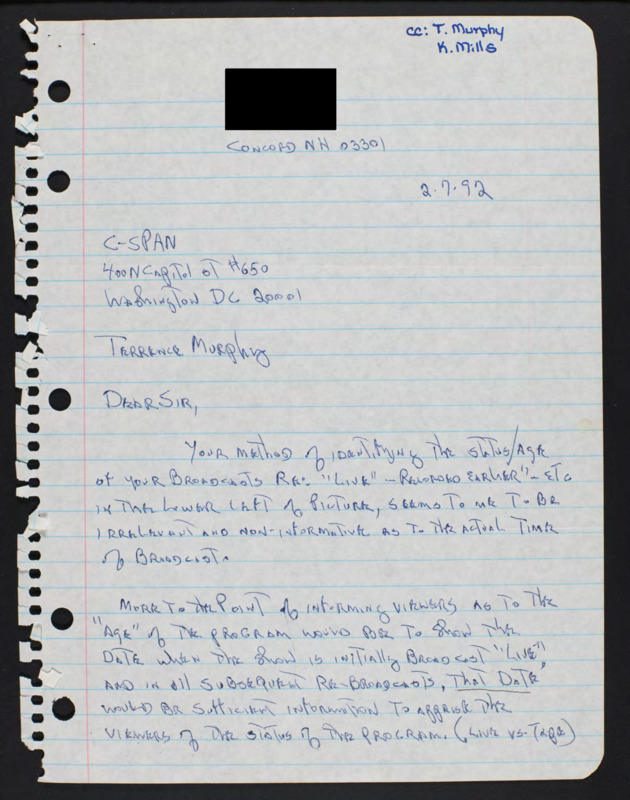 cc: T. Murphy
K. Mills
CONCORD NH 03301
2.7.92
C-SPAN
400 N CAPITOL ST #650
WASHINGTON DC 20001
TERRENCE MURPHY
DEAR SIR,
YOUR METHOD of IDENTIFYING THE STATUS/AGE
OF YOUR BROADCASTS RE: "LIVE" - RECORDED EARLIER" - ETC
IN THE LOWER LEFT of PICTURE, SEEMS TO ME TO BE
IRRELEVANT AND NON-INFORMATIVE AS TO THE ACTUAL TIME
of BROADCAST.
MORE TO THE POINT of INFORMING VIEWERS AS TO THE
"AGE" of THE PROGRAM WOULD BE TO SHOW THE
DATE WHEN THE SHOW IS INITIALLY BROADCAST "LIVE",
AND IN All SUBSEQUENT RE-BROADCASTS, THAT DATE
WOULD BE SUFFICIENT INFORMATION TO APPRAISE THE
VIEWERS of THE STATUS of THE PROGRAM. (LIVE VS-TAPE)